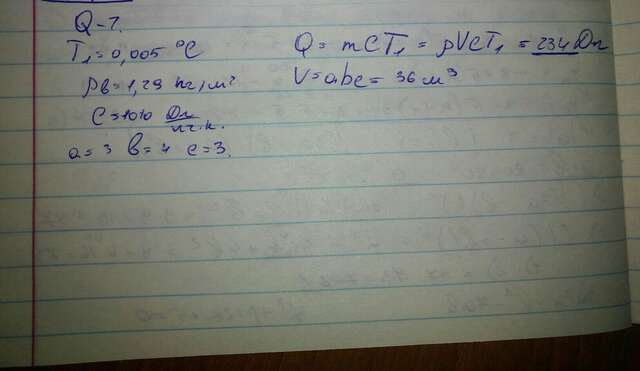 Q-?
T₁=0,005 °C
ρв=1,29 кг/м³
C=1010 Дж/кг.к.
a=3 b=4 c=3.
Q= mCT₁ = ρVCT₁ = 234 Дж
V=abc= 36 м³